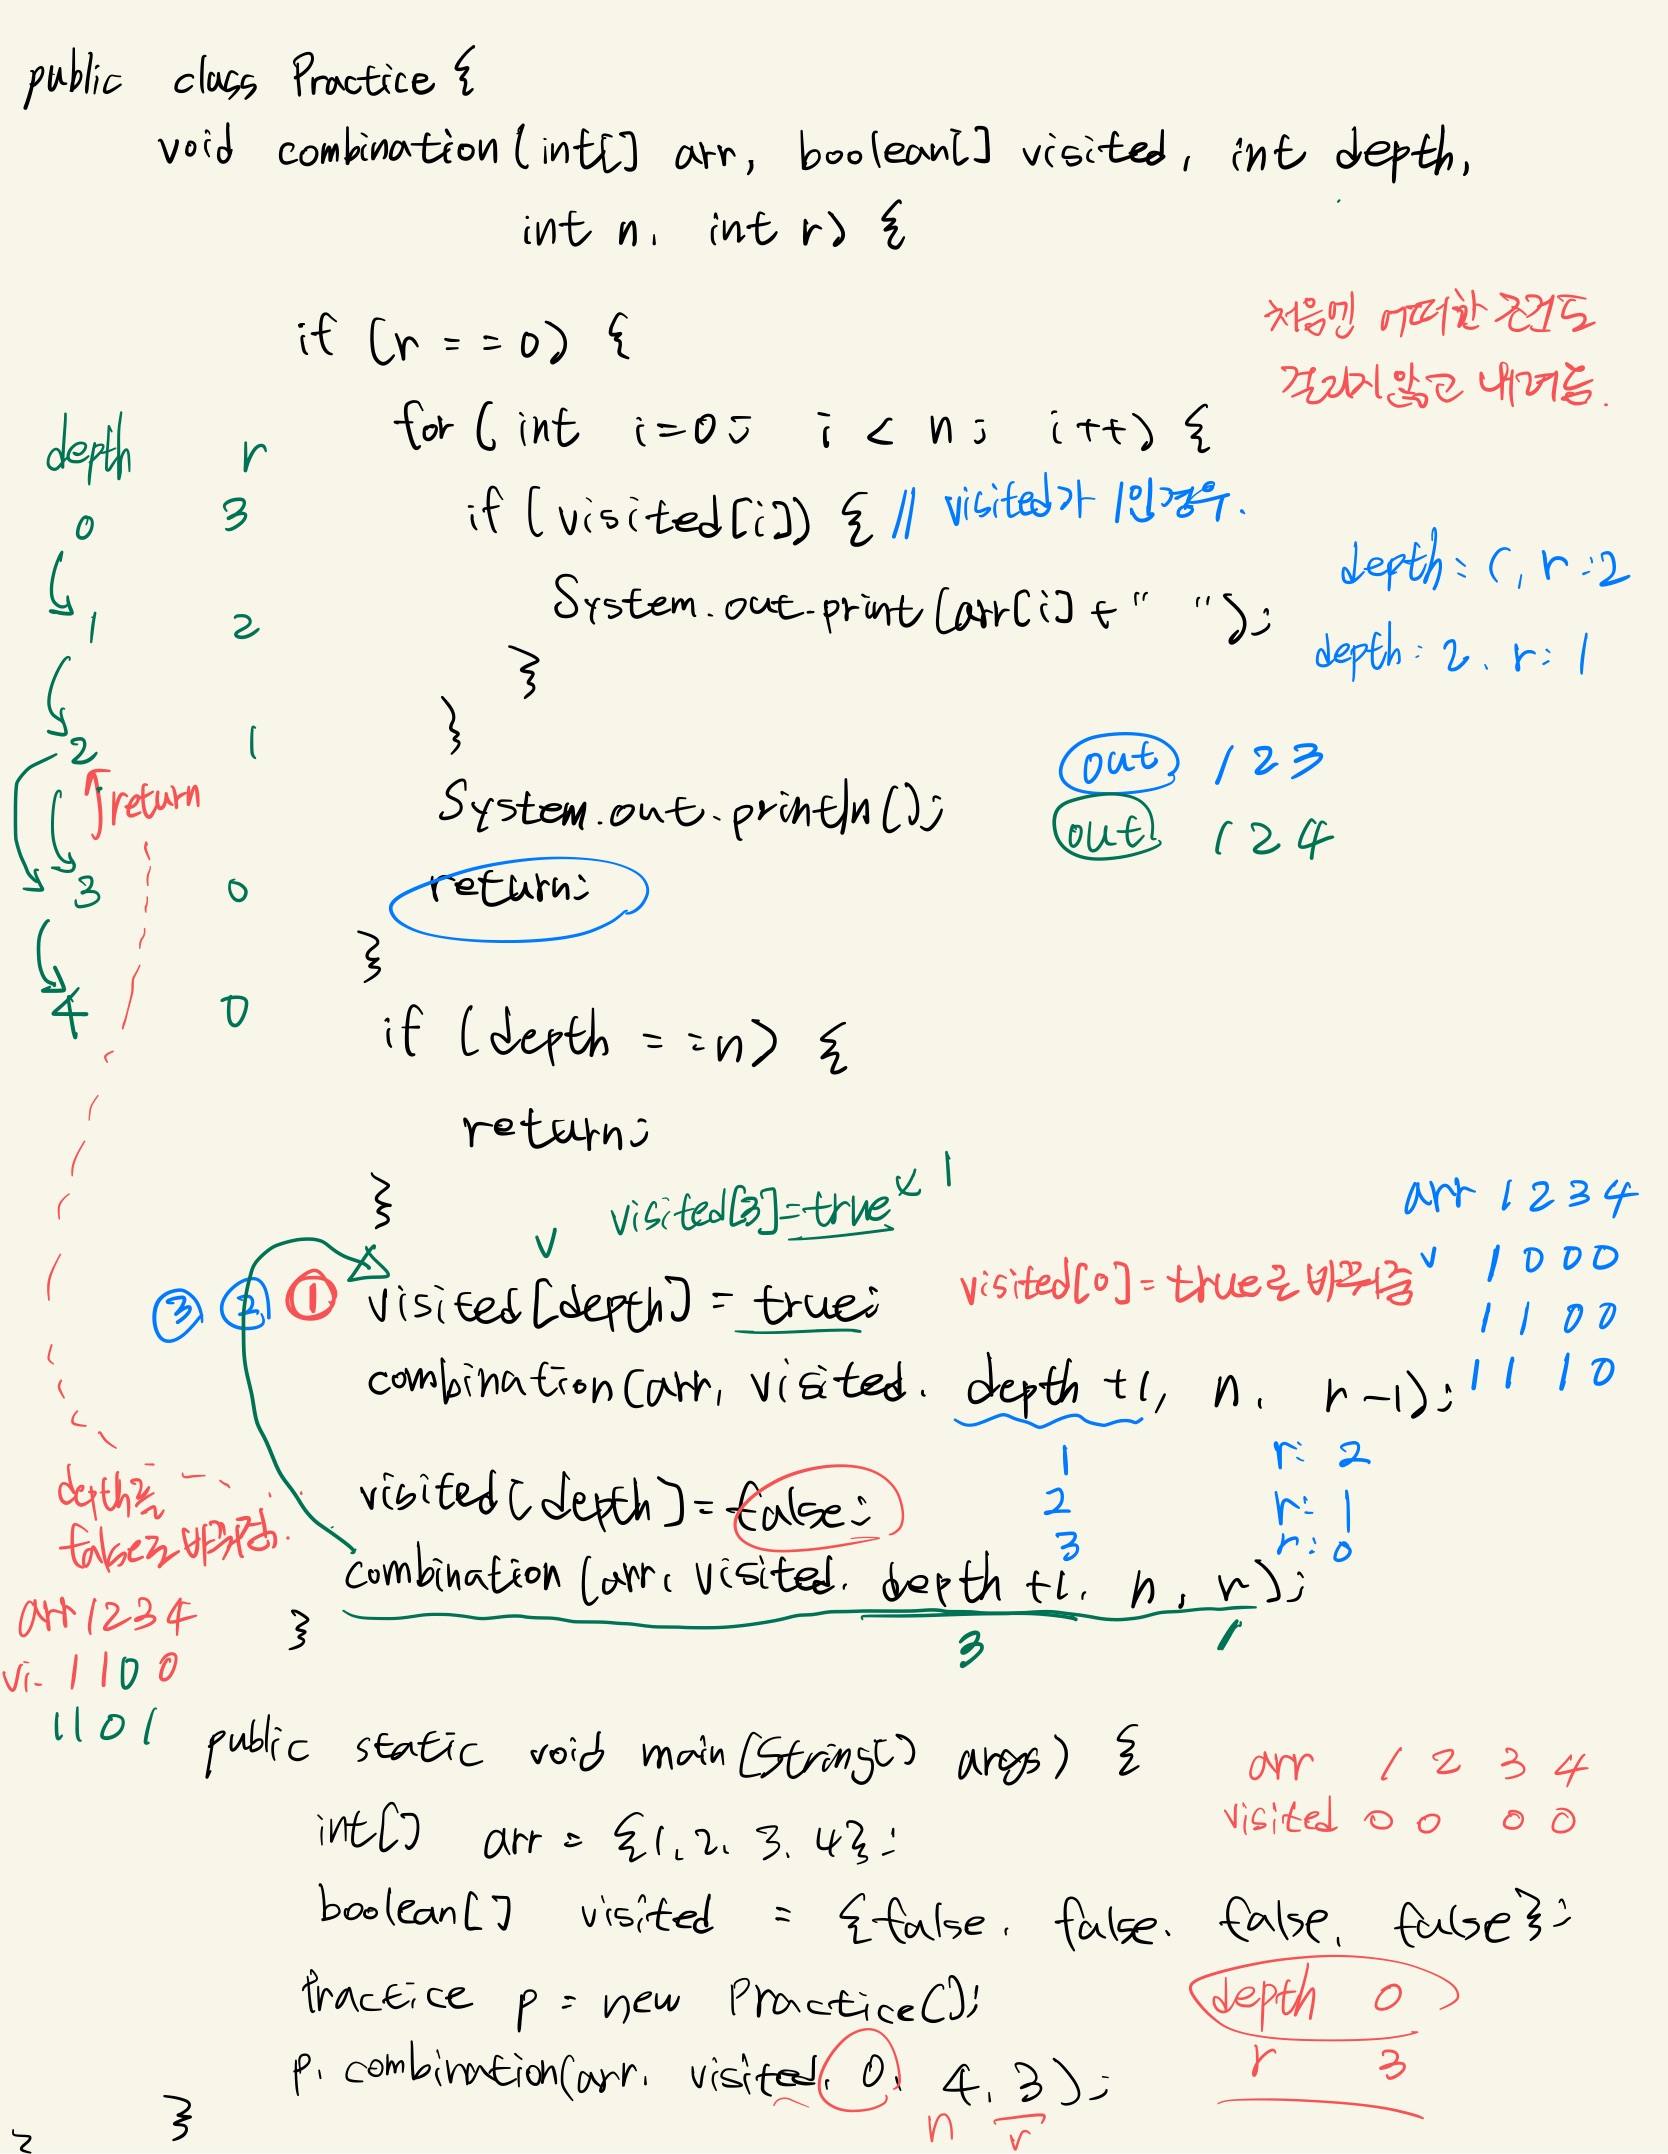 public class Practice {
void combination(int[] arr, boolean[] visited, int depth,
int n, int r) {
처음엔 어떠한 조건도
걸리지않고 내려옴.
if (r == 0) {
for (int i=0; i < n; i++) {
if (visited[i]) { // visited가 1인경우.
System.out.print(arr[i] + " ");
}
}
System.out.println();
return;
}
depth r
0 3
1 2
2 1
return
3 0
4 0
depth: 1, r: 2
depth: 2, r: 1
out 1 2 3
out 1 2 4
if (depth == n) {
return;
}
visited[3]=true
1
v
③ ② ① visited[depth] = true;
visited[0]=true로 바꿔줌
arr 1 2 3 4
v 1 0 0 0
1 1 0 0
1 1 1 0
combination(arr, visited, depth +1, n, r-1);
1 r: 2
2 r: 1
3 r: 0
visited[depth] = false;
depth를
false로 바꿔줌.
combination (arr, visited, depth +1, n, r);
3 1
}
arr 1 2 3 4
vi. 1 1 0 0
1 1 0 1
public static void main(String[] args) {
arr 1 2 3 4
visited 0 0 0 0
int[] arr = {1, 2, 3, 4};
boolean[] visited = {false, false, false, false};
Practice p = new Practice();
depth 0
r 3
p. combination(arr, visited, 0, 4, 3);
n r
}
}